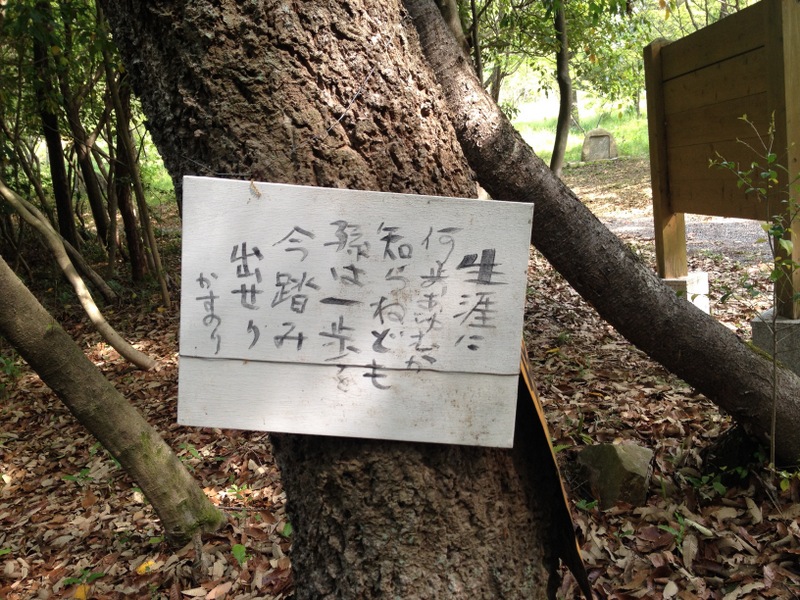 生涯に
何歩あゆむか
知らねども
孫は一歩を
今踏み
出せり
かずのり